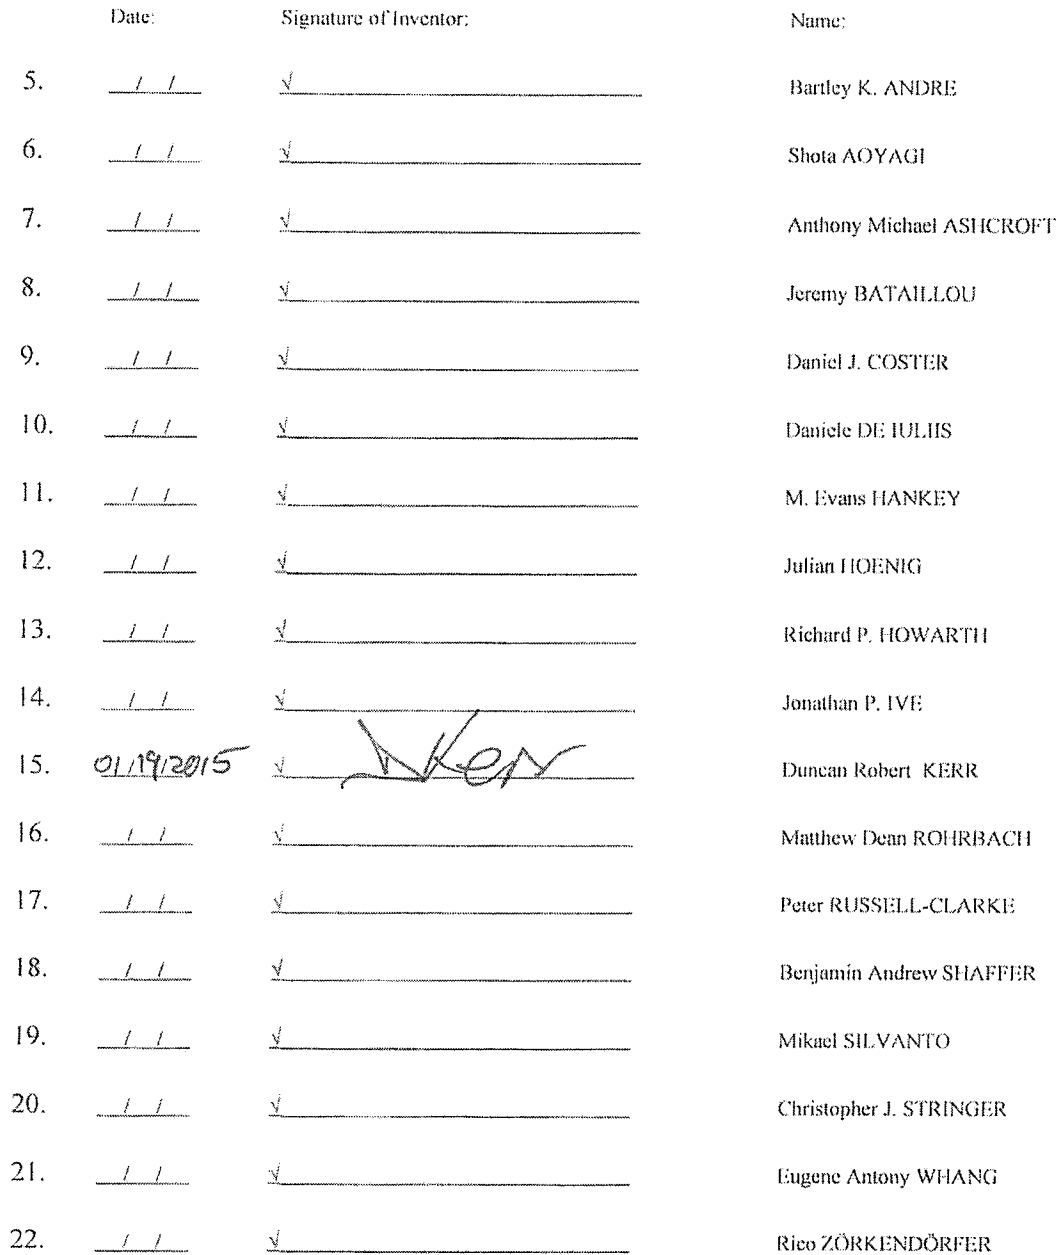 Date: Signature of Inventor: Name:
5. / / √ Bartley K. ANDRE
6. / / √ Shota AOYAGI
7. / / √ Anthony Michael ASHCROFT
8. / / √ Jeremy BATAILLOU
9. / / √ Daniel J. COSTER
10. / / √ Daniele DE IULIIS
11. / / √ M. Evans HANKEY
12. / / √ Julian HOENIG
13. / / √ Richard P. HOWARTH
14. / / √ Jonathan P. IVE
15. 01/19/2015 √ Duncan Robert KERR
16. / / √ Matthew Dean ROHRBACH
17. / / √ Peter RUSSELL-CLARKE
18. / / √ Benjamin Andrew SHAFFER
19. / / √ Mikael SILVANTO
20. / / √ Christopher J. STRINGER
21. / / √ Eugene Antony WHANG
22. / / √ Rico ZÖRKENDÖRFER